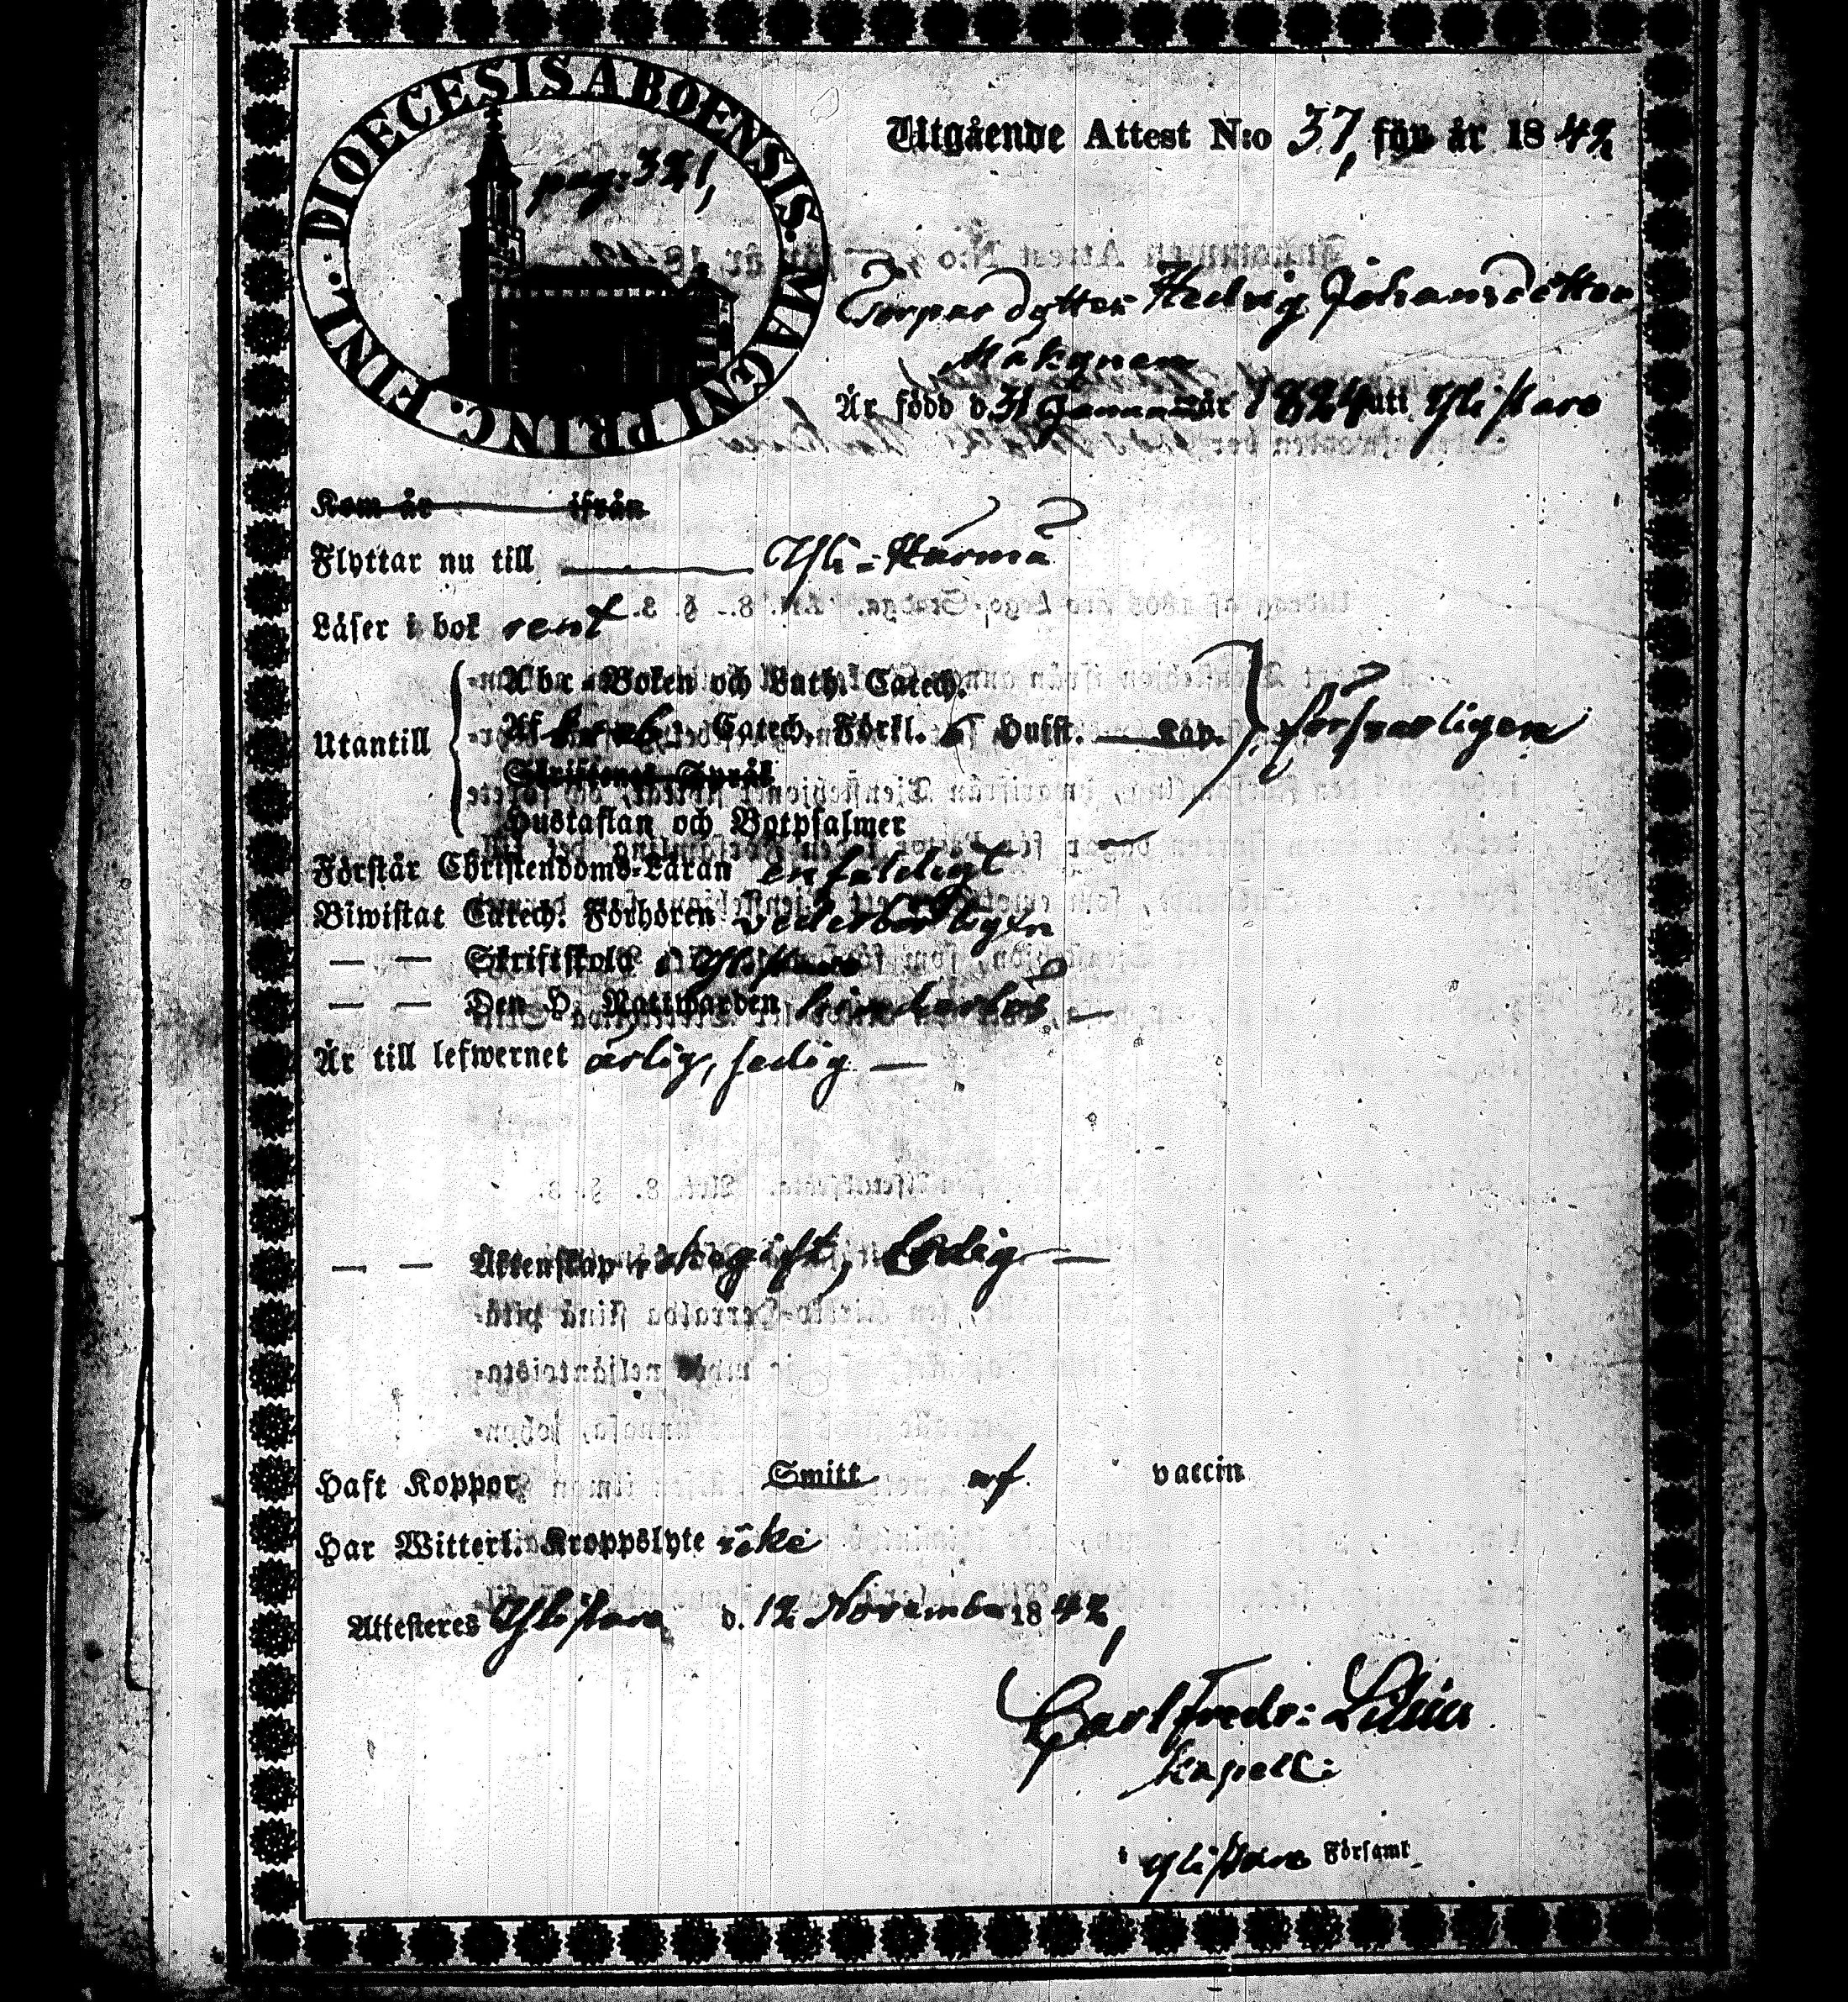 DIOECESIS ABOENSIS. MAGNI PRINC. FINL.
pag: 321,
Utgående Attest N:o 37, för år 1842
Torpar dotter Hedvig Johansdotter
Är född d. 31 Januari år 1824 uti Ylistaro
Kom år ifrån
Flyttar nu till Yli-Härmä
Läser i bok rent
Utantill
Abc-Boken och Luth. Catech.
Af Catech. Förkl. 6 Hufst. Kap.
Skriftenes Språk
försvarligen
Hustaflan och Botpsalmer
Förstår Christendoms-Läran enfaldigt
Biwistat Catech. Förhören vederbörligen
— — Skriftskola i Ylistaro
— — Den H. Nattwarden hinderlös —
Är till lefwernet ärlig, sedig —
— — Äktenskap ogift, ledig —
Haft Koppor Smitt af vaccin
Har Witterl. Kroppslyte icke
Attesteres Ylistaro d. 12 November 1842,
Carl Fredr: Lilius
Kapell:
i Ylistaro Församl.